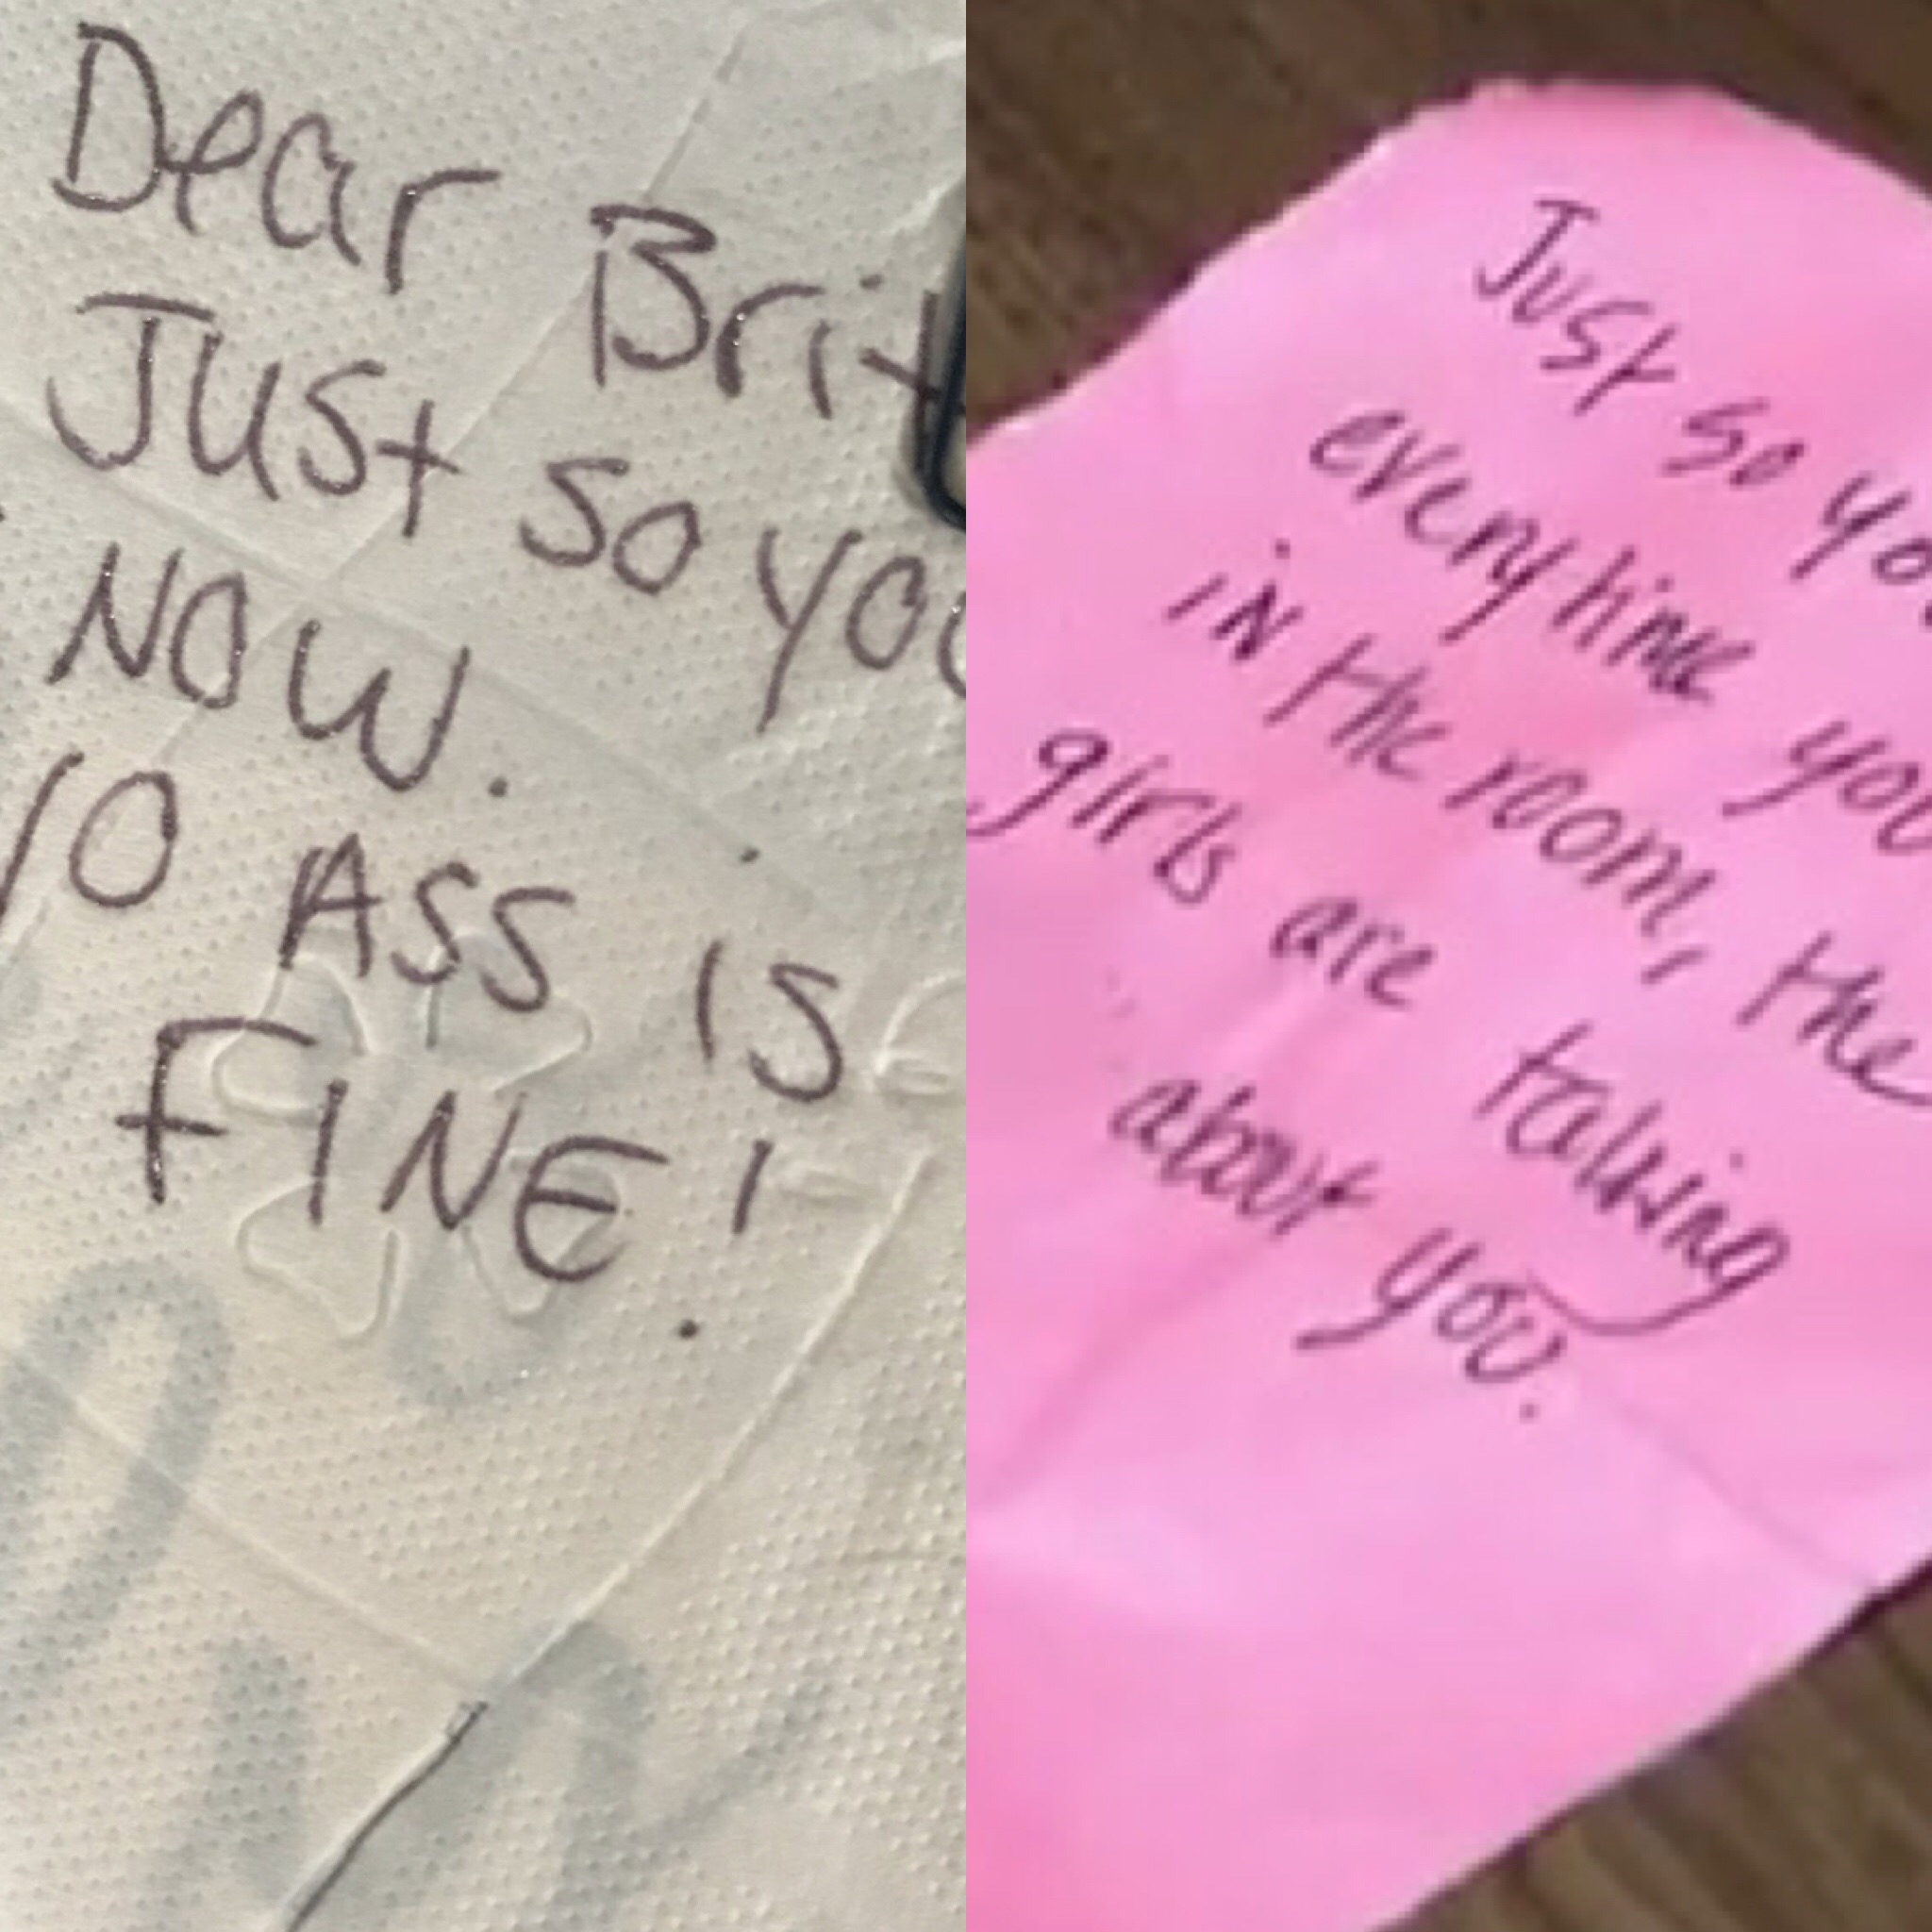 Dear Brit
Just so you
NOW.
YO ASS IS
FINE!
Just so you
everytime you
in the room, the
girls are talking
about you.